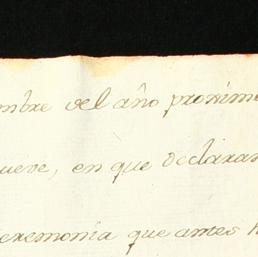 mbre del año proxim
ueve, en que declaran
ceremonia que antes h